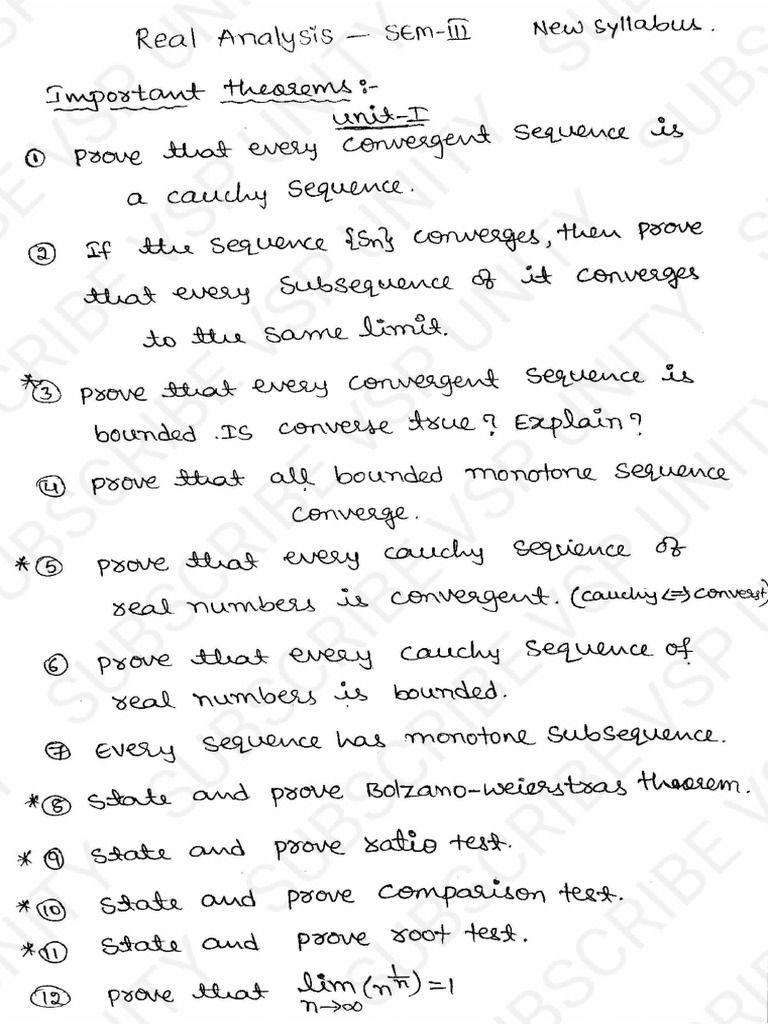 Real Analysis - SEM-III New syllabus.
Important theorems:-
unit-I
① prove that every convergent sequence is
a cauchy sequence.
② If the sequence {Sn} converges, then prove
that every subsequence of it converges
to the same limit.
*③ prove that every convergent sequence is
bounded. Is converse true? Explain?
④ prove that all bounded monotone sequence
converge.
*⑤ prove that every cauchy seqience of
real numbers is convergent. (cauchy<=>converst)
⑥ prove that every cauchy sequence of
real numbers is bounded.
⑦ Every sequence has monotone subsequence.
*⑧ state and prove Bolzano-weierstras theorem.
*⑨ state and prove ratio test.
*⑩ state and prove comparison test.
*⑪ state and prove root test.
⑫ prove that lim n→∞ (n^1/n) = 1
SUBSCRIBE VSP UNITY